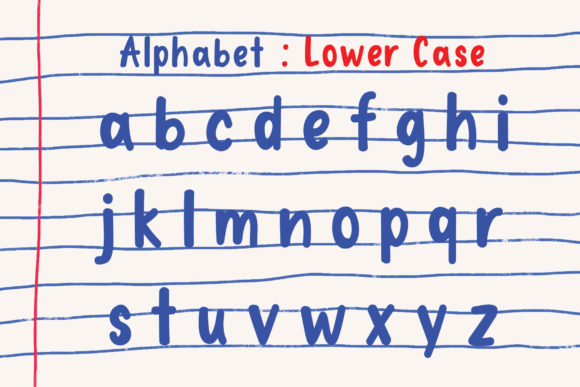 Alphabet : Lower Case
a b c d e f g h i
j k l m n o p q r
s t u v w x y z